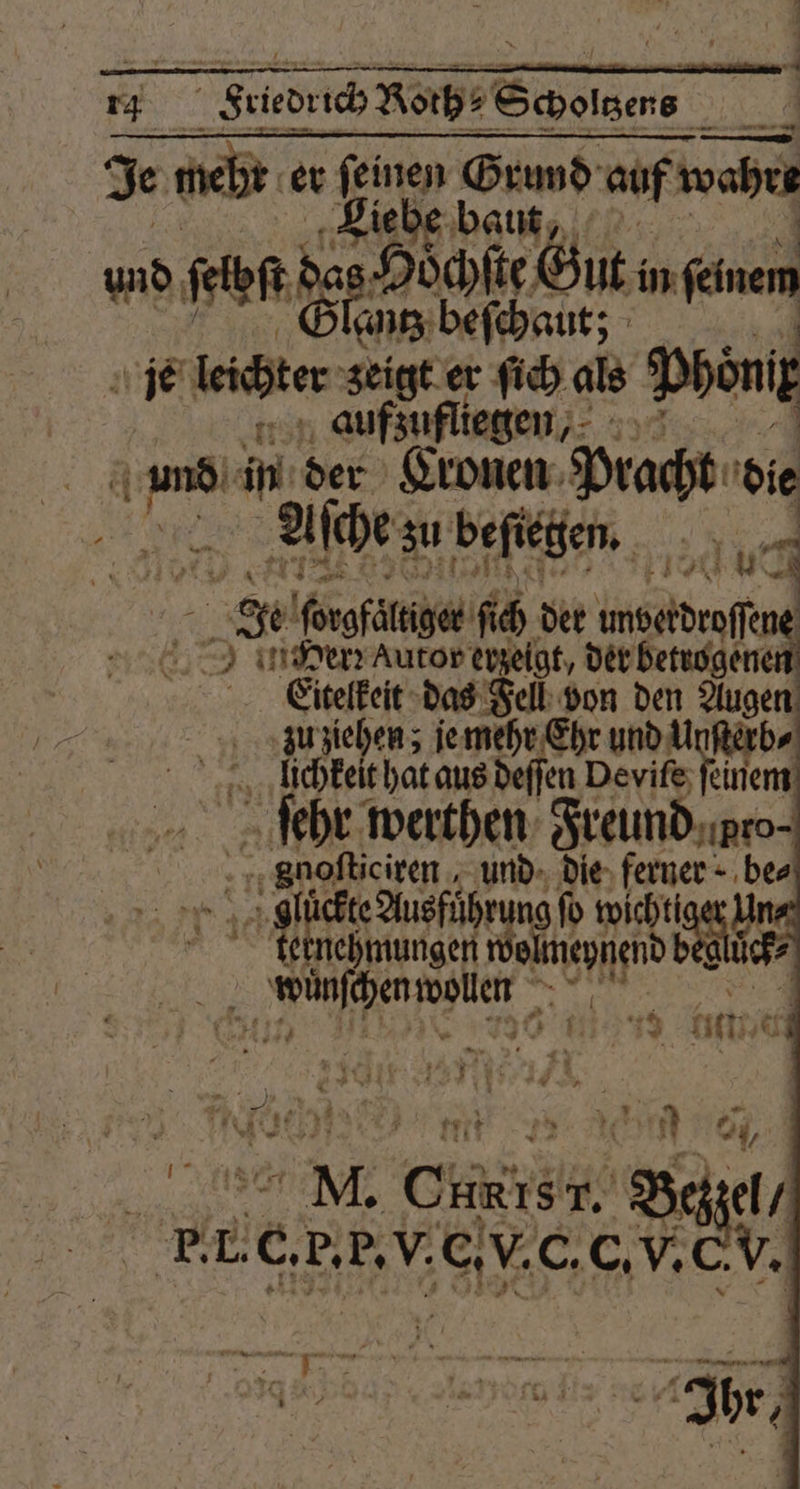 14 Friedrich Roth⸗Scholtzens
Je mehr er ſeinen Grund auf wahre
Liebe baut,
und ſelbſt das Hoͤchſte Gut in ſeinem
Glantz beſchaut;
je leichter zeigt er ſich als Phoͤnix
aufzufliegen,
und in der Cronen Pracht die
Aſche zu beſiegen.
Je ſorgfaͤltiger ſich der unverdroſſene
Herꝛ Autor erzeigt, der betrogenen
Eitelkeit das Fell von den Augen
zu ziehen; je mehr Ehr und Unſterb⸗
lichkeit hat aus deſſen Deviſe ſeinem
ſehr werthen Freund pro-
gnoſticiren, und die ferner - be⸗
gluͤckte Ausfuͤhrung ſo wichtiger Un⸗
ternehmungen wolmeynend begluͤck⸗
wuͤnſchen wollen
M. CHRIST. Bezzel/
P.L.C.P.P.V.C.V.C.C.V.C.V.
Ihr,